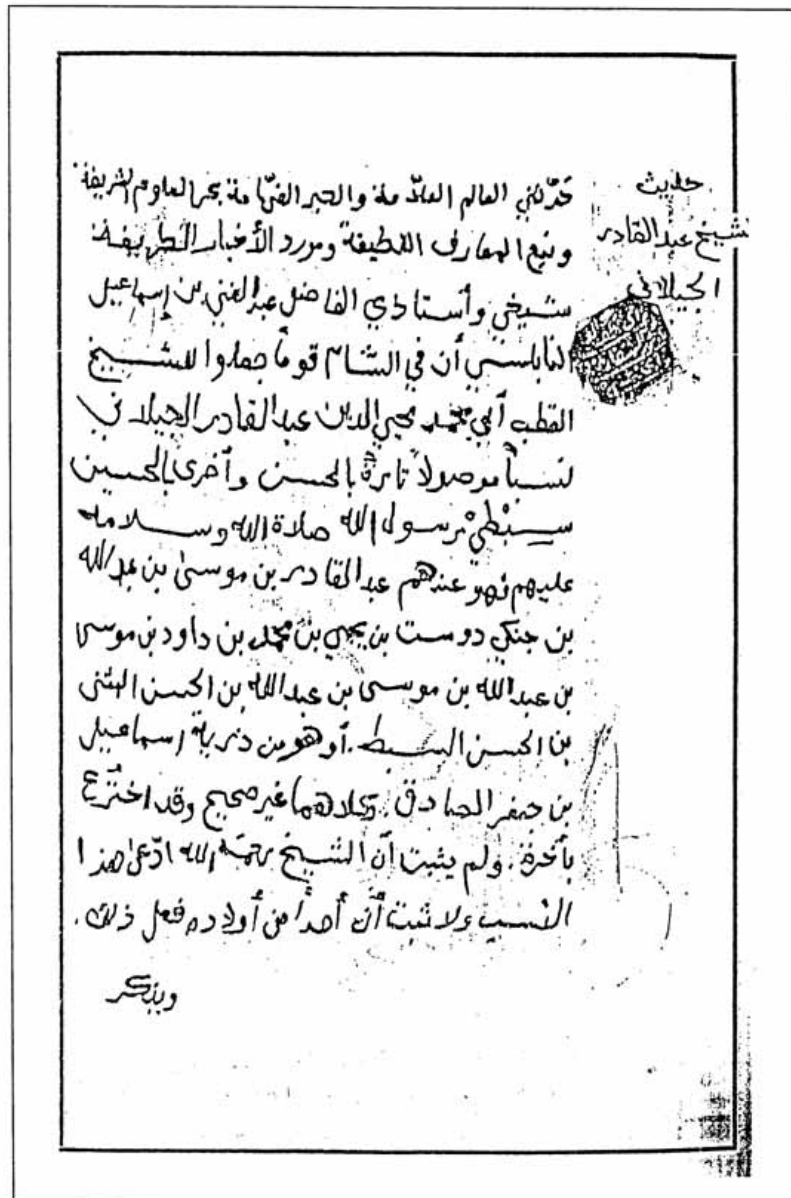 حديث
الشيخ عبد القادر
الجيلاني
حَدّثني العالم العلاّمة والحبر الفهّامة بحر العلوم الشريفة
ونبع المعارف اللطيفة ومورد الأخبار الطريفة
شيخي وأستاذي الفاضل عبد الغني بن إسماعيل
النابلسي أن في الشام قوماً جعلوا للشيخ
القطب أبي محمد محيي الدين عبد القادر الجيلاني
نسباً موصولاً تارةً بالحسن وأخرى بالحسين
سبطي رسول الله صلاة الله وسلامه
عليهم فهو عندهم عبد القادر بن موسى بن عبد الله
بن جنكي دوست بن يحيى بن محمد بن داود بن موسى
بن عبد الله بن موسى بن عبد الله بن الحسن المثنى
بن الحسن السبط. أو هو من ذرية إسماعيل
بن جعفر الصادق. وكلاهما غير صحيح وقد اختُرع
بأخرة. ولم يثبت أن الشيخ رحمه الله ادّعى هذا
النسب ولا ثبت أن أحداً من أولاده فعل ذلك.
ويذكر